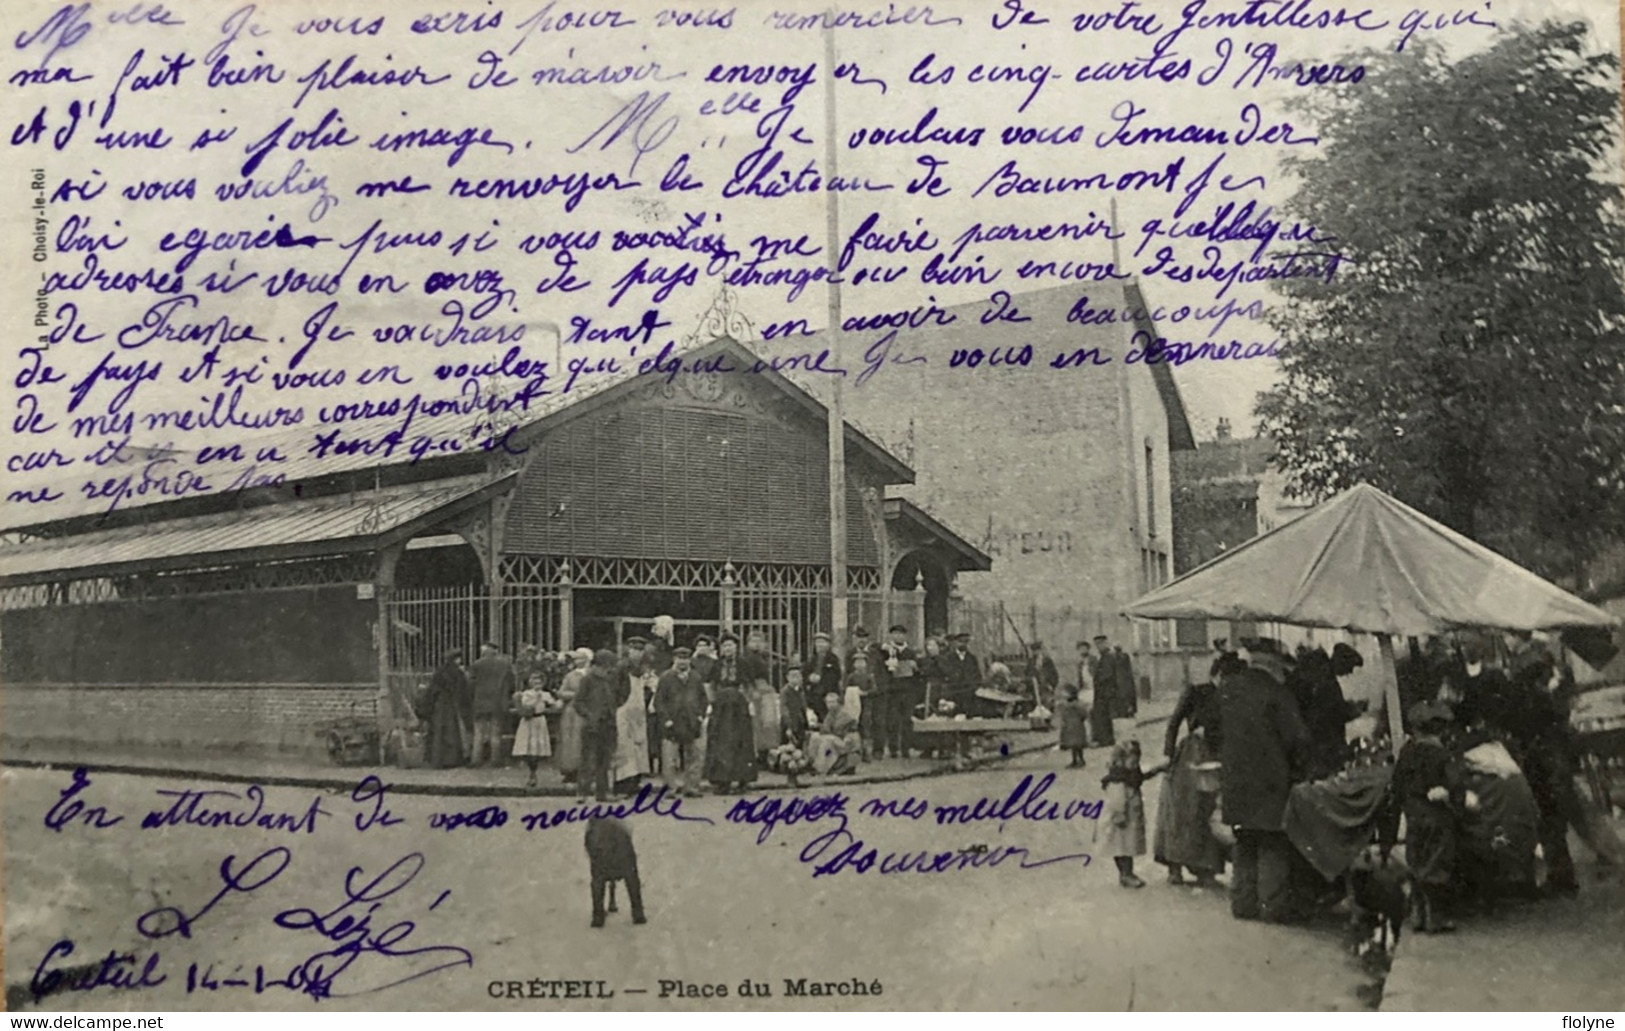 Melle Je vous ecris pour vous remercier de votre gentillesse qui
ma fait bien plaisir de m'avoir envoyer les cinq cartes d'Anvers
et d'une si jolie image. Melle Je voulais vous demander
si vous vouliez me renvoyer le château de Baumont Je
l'ai egaré puis si vous me faire parvenir
adresses si vous en avez de pays étranger ou bien encore des departent
de France. Je voudrais tant en avoir de beaucoups
de pays et si vous en voulez qu'elque une Je vous en donnerai
de mes meilleurs correspondant
car il y en a tant qu'il
ne réponde pas.
La Photo - Choisy-le-Roi
ATEUR
En attendant de vos nouvelle mes meilleurs
souvenir
L Lézé
Creteil 14-1-04
CRÉTEIL — Place du Marché
https://www.delcampe.net
flolyne